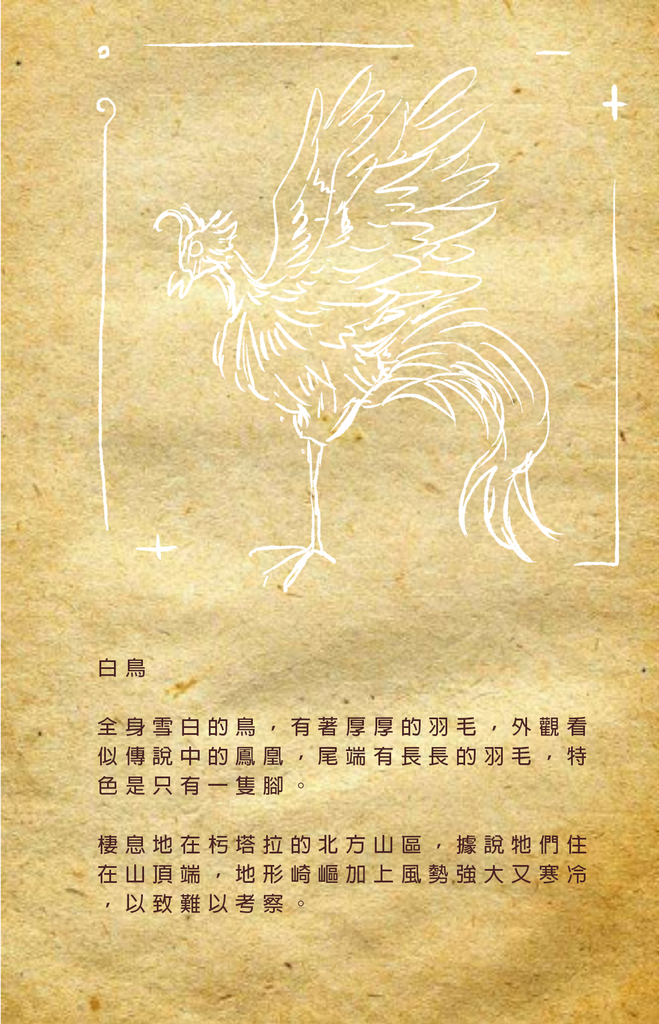 白鳥
全身雪白的鳥，有著厚厚的羽毛，外觀看
似傳說中的鳳凰，尾端有長長的羽毛，特
色是只有一隻腳。
棲息地在杇塔拉的北方山區，據說牠們住
在山頂端，地形崎嶇加上風勢強大又寒冷
，以致難以考察。